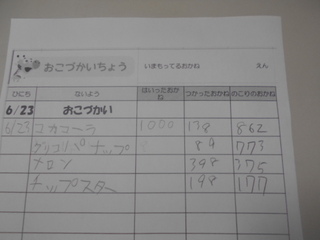 おこづかいちょう いまもってるおかね えん
ひにち ないよう はいったおかね つかったおかね のこりのおかね
6/23 おこづかい
6/23 コカコーラ 1000 138 862
グリコパナップ 89 773
メロン 398 375
チップスター 198 177